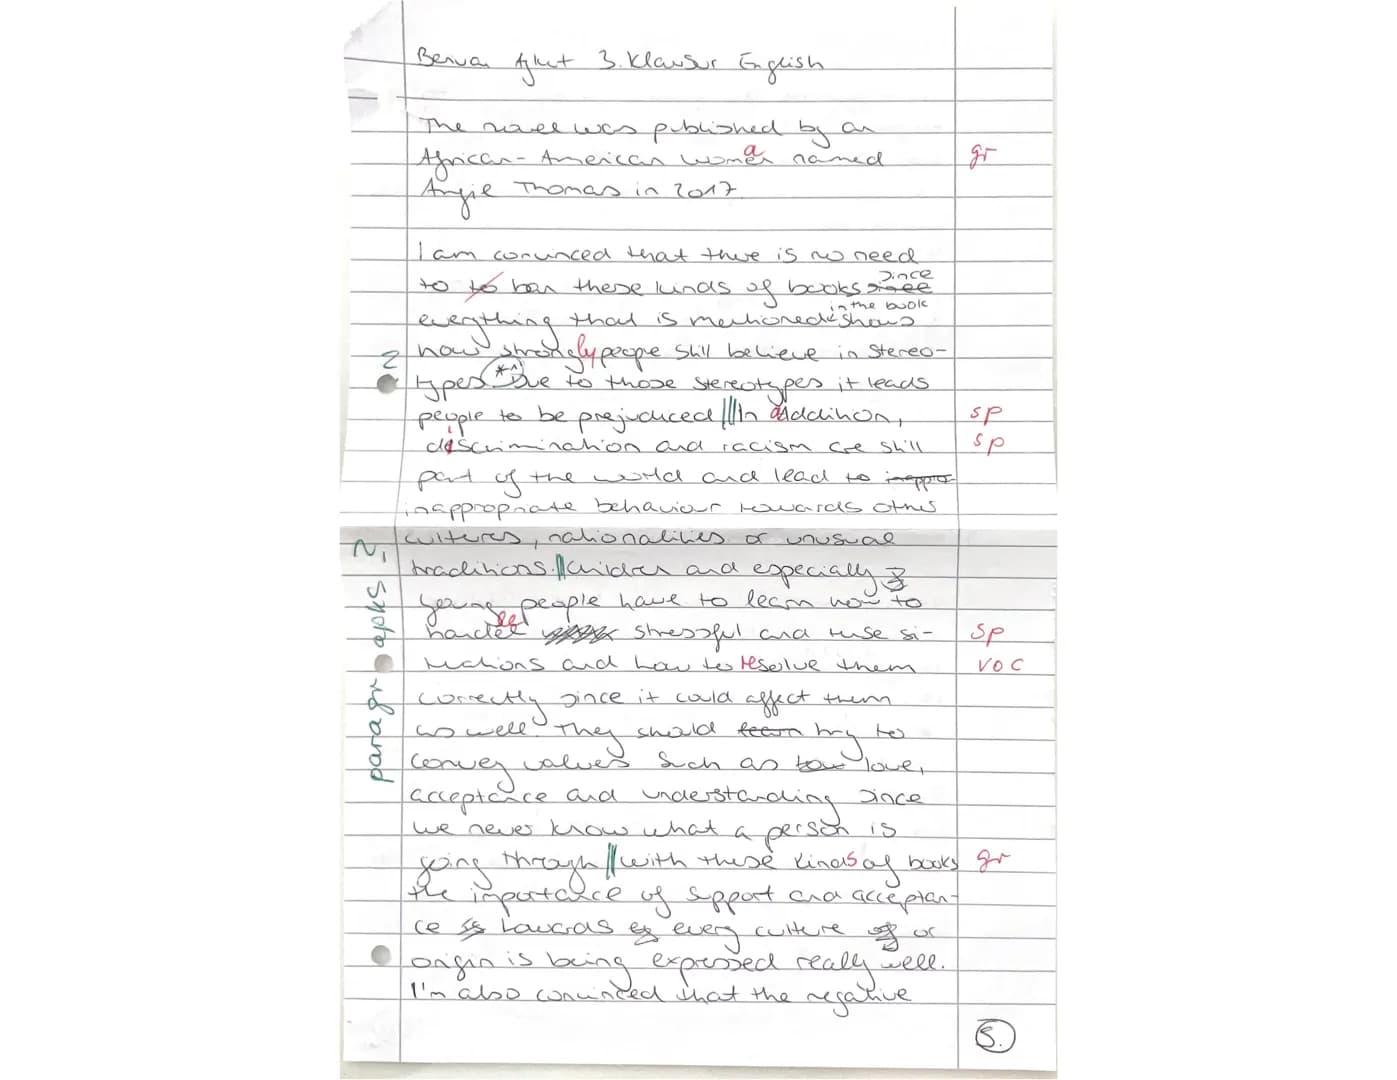 Berva Aykut 3. Klausur English
The novel was published by an
African-American woman named gr
Angie Thomas in 2017.
I am convinced that there is no need
to to ban these kinds of books since
everything that is mentioned in the book shows
how strongly people still believe in stereo-
types *1 Due to those stereotypes it leads
people to be prejuduced || In addition, sp
discrimination and racism are still sp
part of the world and lead to inappro
inappropriate behaviour towards other
cultures, nationalities or unusual
traditions. || Children and especially
young people have to learn how to
handle stressful and tense si- sp
tuations and how to resolve them voc
correctly since it could affect them
as well. They should learn try to
convey values such as love,
acceptance and understanding since
we never know what a person is
going through || with these kinds of books gr
the importance of support and acceptan-
ce is towards every culture or
origin is being expressed really well.
I'm also convinced that the negative
paragraphs ?
?
5.